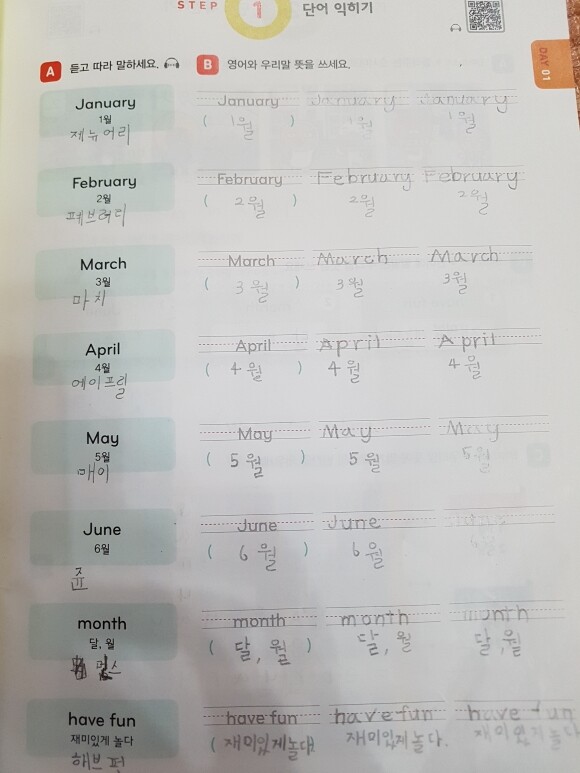 STEP 1 단어 익히기
DAY 01
A 듣고 따라 말하세요.
B 영어와 우리말 뜻을 쓰세요.
January January January January
1월 ( 1월 ) 1월 1월
제뉴어리
February February February February
2월 ( 2월 ) 2월 2월
페브러리
March March March March
3월 ( 3월 ) 3월 3월
마치
April April April April
4월 ( 4월 ) 4월 4월
에이프릴
May May May May
5월 ( 5월 ) 5월 5월
매이
June June June
6월 ( 6월 ) 6월
쥰
month month month month
달, 월 ( 달, 월 ) 달, 월 달, 월
have fun have fun have fun have fun
재미있게 놀다 ( 재미있게놀다 ) 재미있게 놀다. 재미있게 놀다
해브 펀